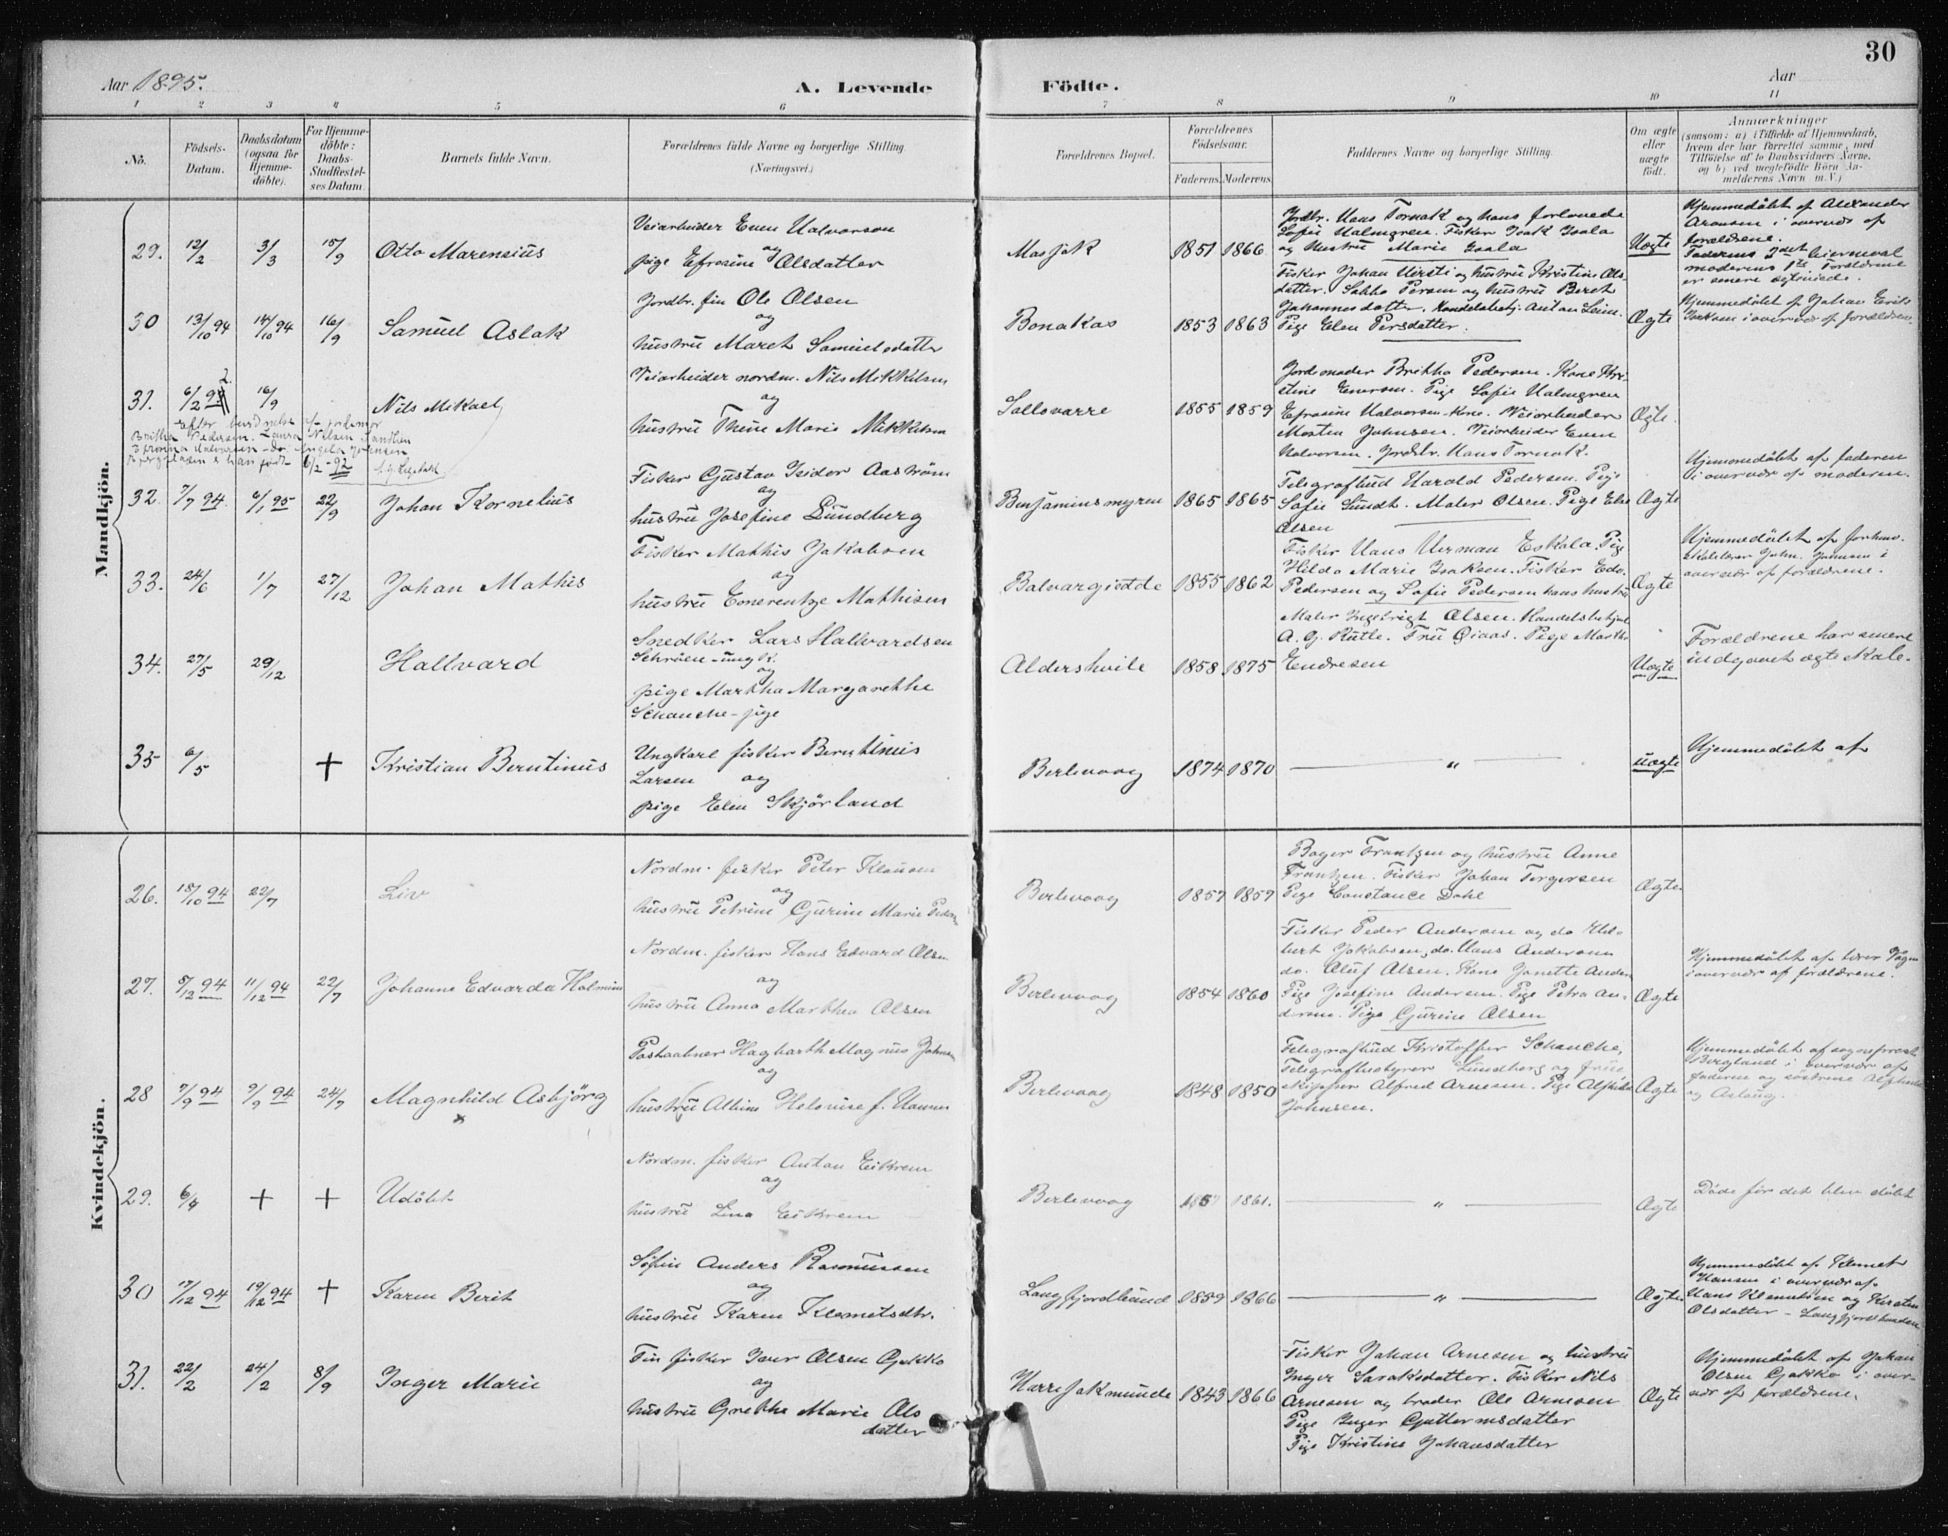 30
Aar 1895.
A. Levende
Födte.
Aar
1 2 3 4 5 6 7 8 9 10 11
No.
Födsels-
Datum.
Daabsdatum
(ogsaa for
Hjemme-
döbte).
For Hjemme-
döbte:
Daabs-
Stadfæstel-
ses Datum.
Barnets fulde Navn.
Forældrenes fulde Navne og borgerlige Stilling.
(Næringsvei.)
Forældrenes Bopæl.
Forældrenes
Födselsaar.
Faderens. Moderens.
Faddernes Navne og borgerlige Stilling.
Om ægte
eller
uægte
födt.
Anmærkninger
(saasom: a) i Tilfælde af Hjemmedaab,
hvem der har forrettet samme, med
Tilföielse af to Daabsvidners Navne,
og b) ved uægtefödte Börn An-
melderens Navn m. V.)
Mandkjön.
29. 12/2 3/3 15/9 Otto Marensius
Veiarbeider Even Halvorsen
og
pige Efrosine Olsdatter
Masjok 1851 1866
Jordbr. Hans Tornak og hans forlovede
Sofie Halmgren. Fisker Isak Isala
og hustru Marie Isala
Uægte
Hjemmedøbt af Alexander
Aronsen i overvær af
forældrene.
Faderens 3det leiermaal
moderens 1ste Forældrene
er senere ægteviede.
30 13/10 94 14/10 94 16/9 Samuel Aslak
Jordbr. fin Ole Olsen
og
hustru Maret Samuelsdatter
Bonakas 1853 1863
Fisker Johan Hirsti og hustru Kristine Ols-
datter. Sabba Persen og hustru Beret
Johannesdatter. Handelsbetj. Anton Leim.
Pige Elen Persdatter.
Ægte
Hjemmedøbt af Johan Erik
Isaksen i overvær af forældrene.
31. 6/2 92 16/9 Nils Mikael
Veiarbeider nordm. Nils Mikkelsen
og
hustru Thrine Marie Mikkelsen
Sallovarre 1855 1859
Jordemoder Britha Pedersen. Kone Kri-
stine Enersen. Pige Sofie Halmgren
Efrosine Halvorsen - Kone. Veiarbeider
Morten Johnsen. Veiarbeider Even
Halvorsen. Jordbr. Hans Tornak.
Ægte.
efter jordemor
Britha Pedersen. Laura Nilsen
Efrosina Halvorsen - do. Angela Johnsen
er han født 6/2 - 92
32. 7/7 94. 6/1 95 22/9 Johan Kornelius
Fisker Gustav Isidor Aastrøm
og
hustru Josefine Lundberg
Benjaminsmyren 1865 1865
Telegrafbud Harald Pedersen. Pige
Sofie Sundt. Maler Olsen. Pige Else
Olsen
Ægte
Hjemmedøbt af faderen
i overvær af moderen.
33. 24/6 1/7 27/12 Johan Mathis
Fisker Mathis Jakobsen
og
hustru Emerentze Mathisen
Balvargiedde 1855 1862
Fisker Hans Herman Eskala. Pige
Hilda Marie Isaksen. Fisker Edv.
Pedersen og Sofie Pedersen hans hustru
Ægte
Hjemmedøbt af forhen.
skolelærer John. Johnsen i
overvær af forældrene.
34. 27/5 29/12 Hallvard
Snedker Lars Hallvardsen
Schrøen - ungk.
og
pige Martha Margarethe
Schanche - pige
Aldershvile 1858 1875
Maler Ingebrigt Olsen. Handelsbetjent
A. G. Rutle. Fru Qiaas. Pige Marthe
Endresen
Uægte
Forældrene har senere
indgaaet ægteskab.
35 6/5 + Kristian Berntinus
Ungkarl fisker Berntinus
Larsen og
pige Elen Skjørland
Berlevaag 1874 1870
"
uægte
Hjemmedøbt af
Kvindekjön.
26. 18/10 94 22/7 Liv
Nordm. fisker Peter Klausen
og
hustru Petrine Gurine Marie Peders.
Berlevaag 1857 1857
Bager Frantzen og hustru Anne
Frantzen. Fisker Johan Torgersen
Pige Constance Dahl
Ægte
27. 8/12 94 11/12 94 22/7 Johanne Edvarda Halmine
Nordm. fisker Hans Edvard Olsen
og
hustru Anna Marthea Olsen
Berlevaag 1854 1860
Fisker Peder Andersen og do Hil-
bert Jakobsen, do. Hans Andersen
do. Oluf Olsen. Kone Janette Ander
Pige Josefine Andersen. Pige Petra An-
dersen. Pige Gurine Olsen
Ægte
Hjemmedøbt af lærer Vogn
i overvær af forældrene.
28 7/9 94 9/9 94 24/7 Magnhild Asbjørg
Postaabner Hagbarth Magnus Johnsen
og
hustru Albine Helouise f. Hanne
Berlevaag 1848 1850
Telegrafbud Kristoffer Schanche,
Telegrafbestyrer Lundberg og frue
Alfred Arnesen. Pige Alfhilde
Johnsen.
Ægte
Hjemmedøbt af sogneprest
Bergland i overvær af
faderen og søstrene Alfhilde
og Aslaug.
29. 6/4 + + Udøbt
Nordm. fisker Anton Eikrem
og
hustru Lina Eikrem
Berlevaag 1857 1861.
"
Ægte
Døde før det blev døbt
30 17/12 94 19/12 94 + Karen Berit
Søfin Anders Rasmussen
og
hustru Karen Klemetsdtr.
Langfjordbund 1859 1866
"
Ægte
Hjemmedøbt af Klemet
Hansen i overvær af
Hans Klemetsen og Kirsten
Olsdatter - Langfjordbunden
31. 22/2 24/2 8/9 Inger Marie
Fin fisker Iver Olsen Gakko
og
hustru Grethe Marie Ols
datter
Harrejakmunde 1843 1866
Fisker Johan Arnesen og hustru
Inger Saraksdatter. Fisker Nils
Arnesen og broder Ole Arnesen
Pige Inger Guttormsdatter
Pige Kristine Johansdatter
Ægte
Hjemmedøbt af Johan
Olsen Gakko i over-
vær af forældrene.